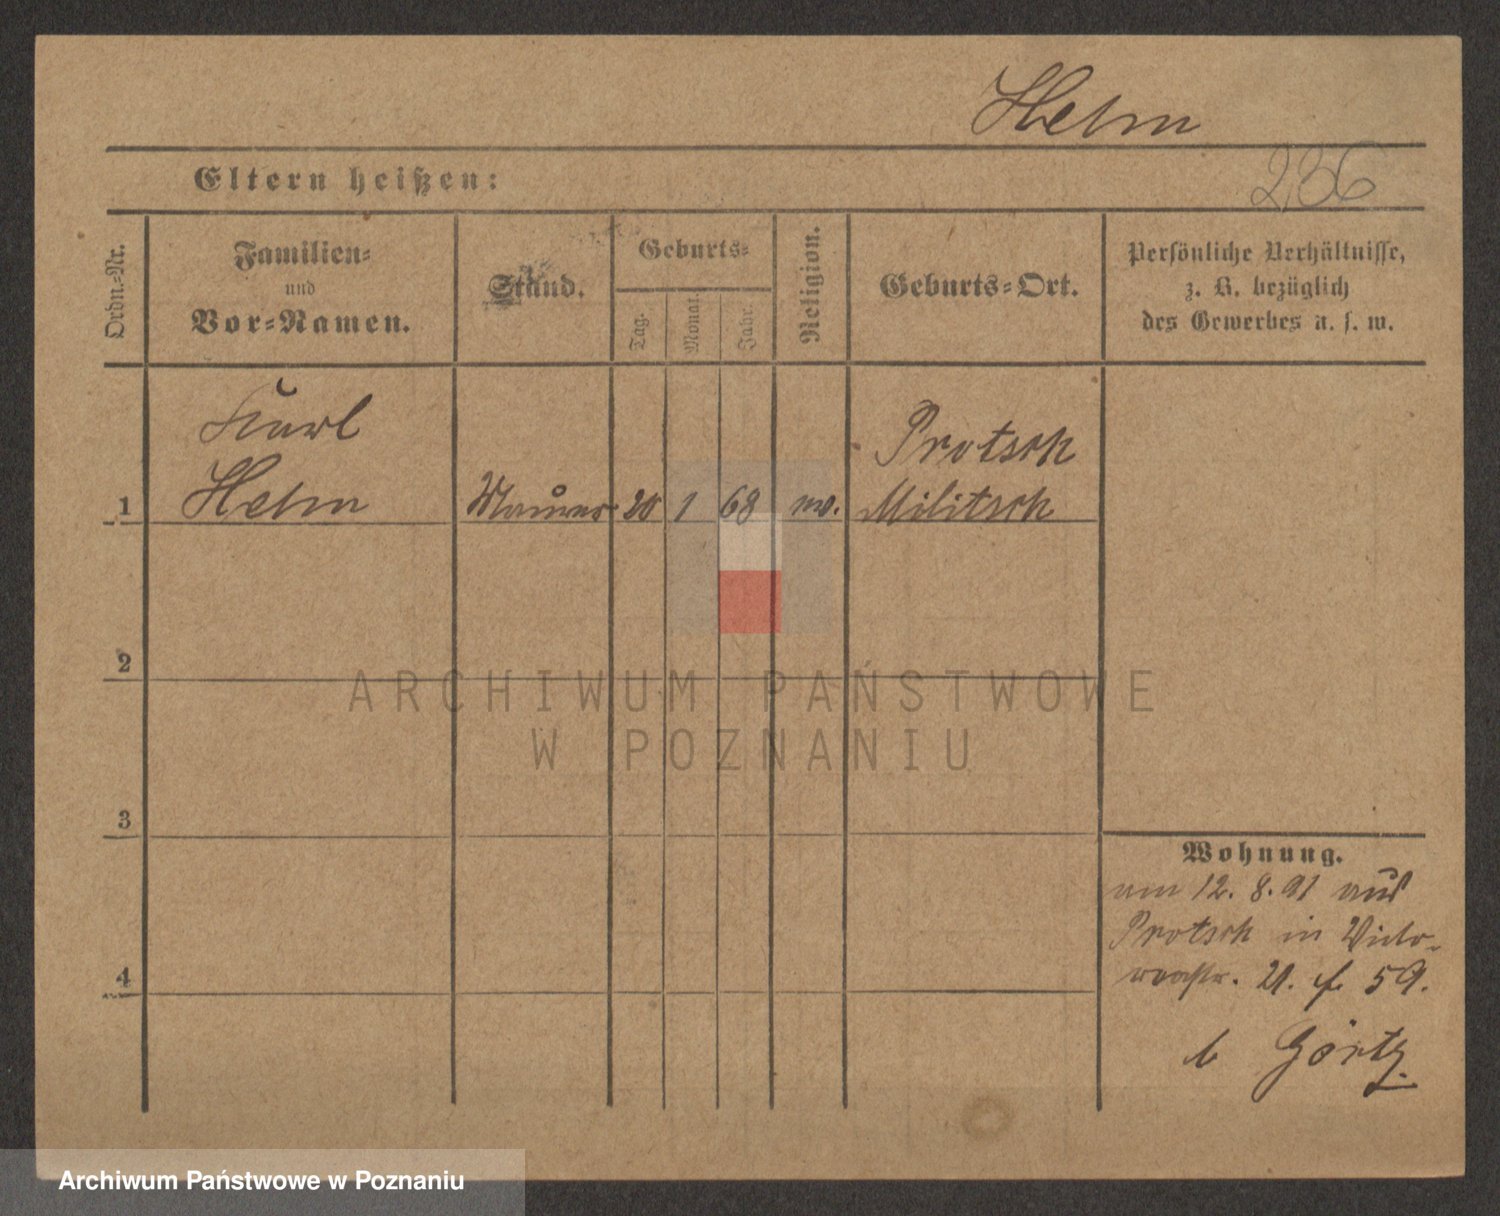 Helm
236
Eltern heißen:
Ordn.-Nr.
Familien-
und
Vor-Namen.
Stand.
Geburts-
Tag.
Monat.
Jahr.
Religion.
Geburts-Ort.
Persönliche Verhältnisse,
z. B. bezüglich
des Gewerbes u. s. w.
Karl
Helm
Protsch
1
Maurer
20
1
68
Militsch
2
3
4
Wohnung.
am 12. 8. 91 aus
Protsch in Victo-
21. f. 59.
b Görtz.
ARCHIWUM PAŃSTWOWE
W POZNANIU
Archiwum Państwowe w Poznaniu